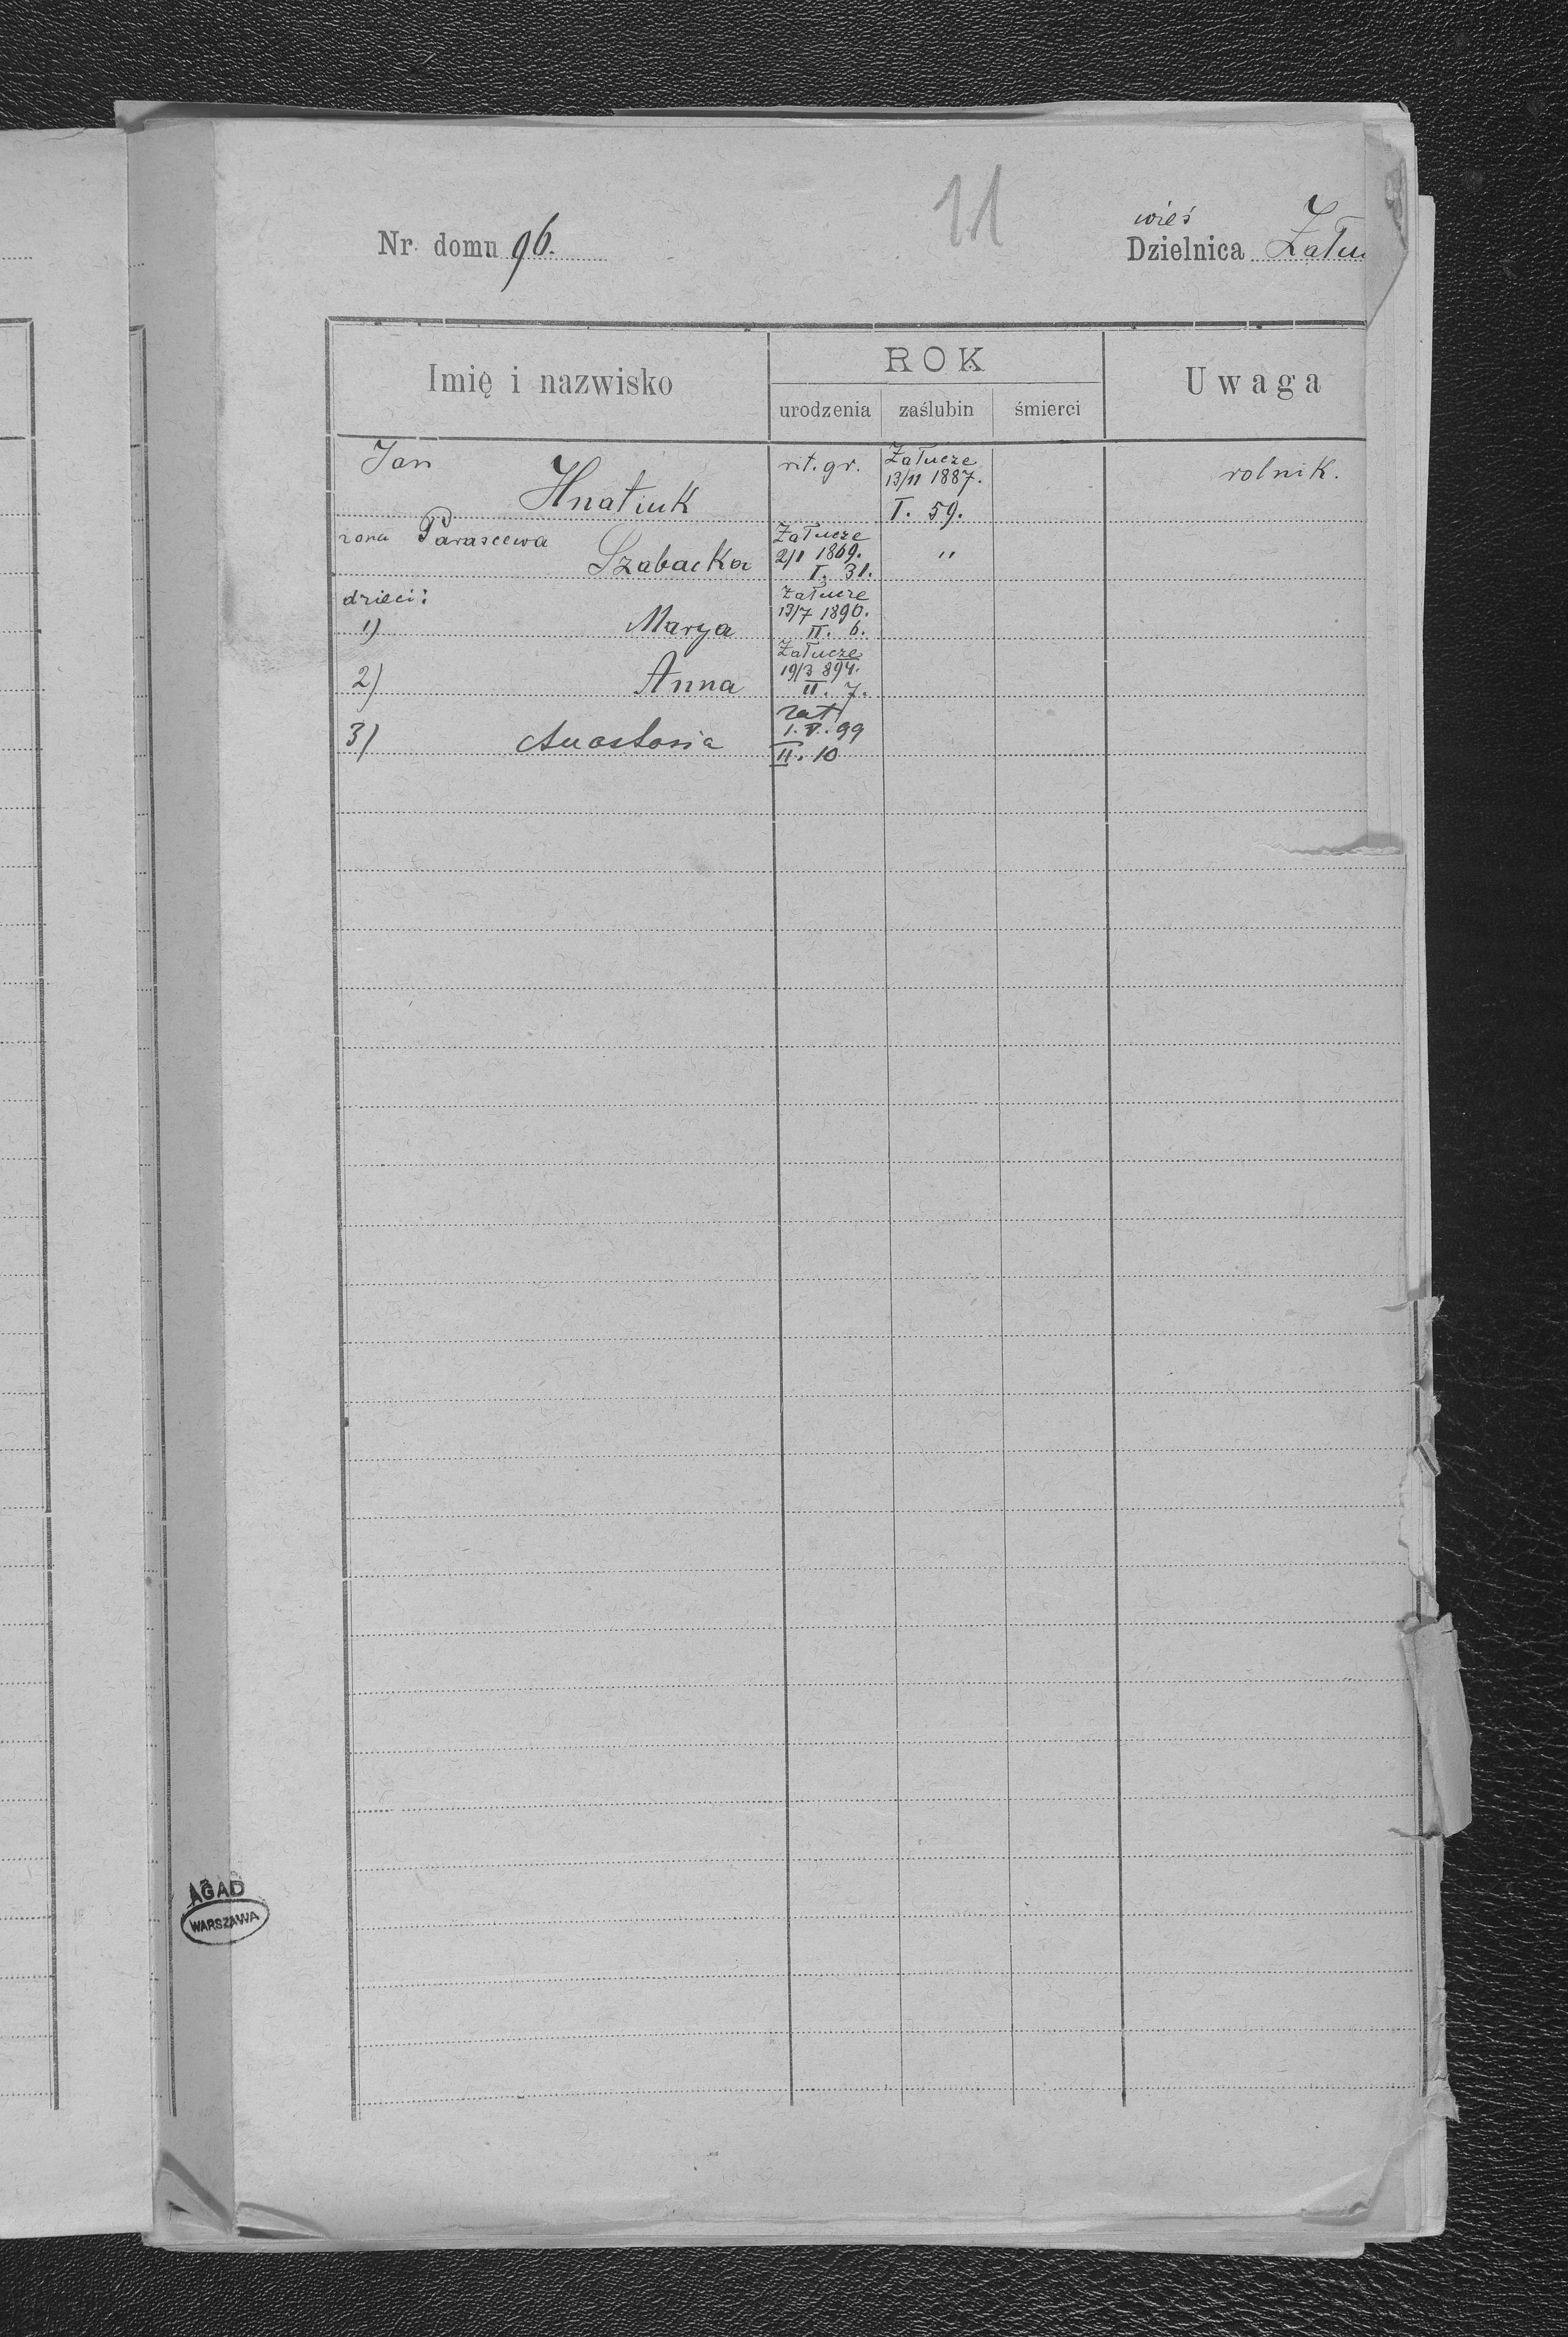 11
wieś
Nr. domu 96.
Dzielnica Zału
Imię i nazwisko
ROK
Uwaga
urodzenia
zaślubin
śmierci
Jan Hnatiuk
rit. gr.
Załucze
13/11 1887.
I. 59.
rolnik.
żona Parascewa Szabacka
Załucze
2/1 1869.
I. 31.
"
dzieci:
1) Marya
Załucze
13/7 1890.
II. 6.
2) Anna
Załucze
19/3 894.
II. 7.
3) Anastasia
Zał
1. V. 99
II. 10
AGAD
WARSZAWA